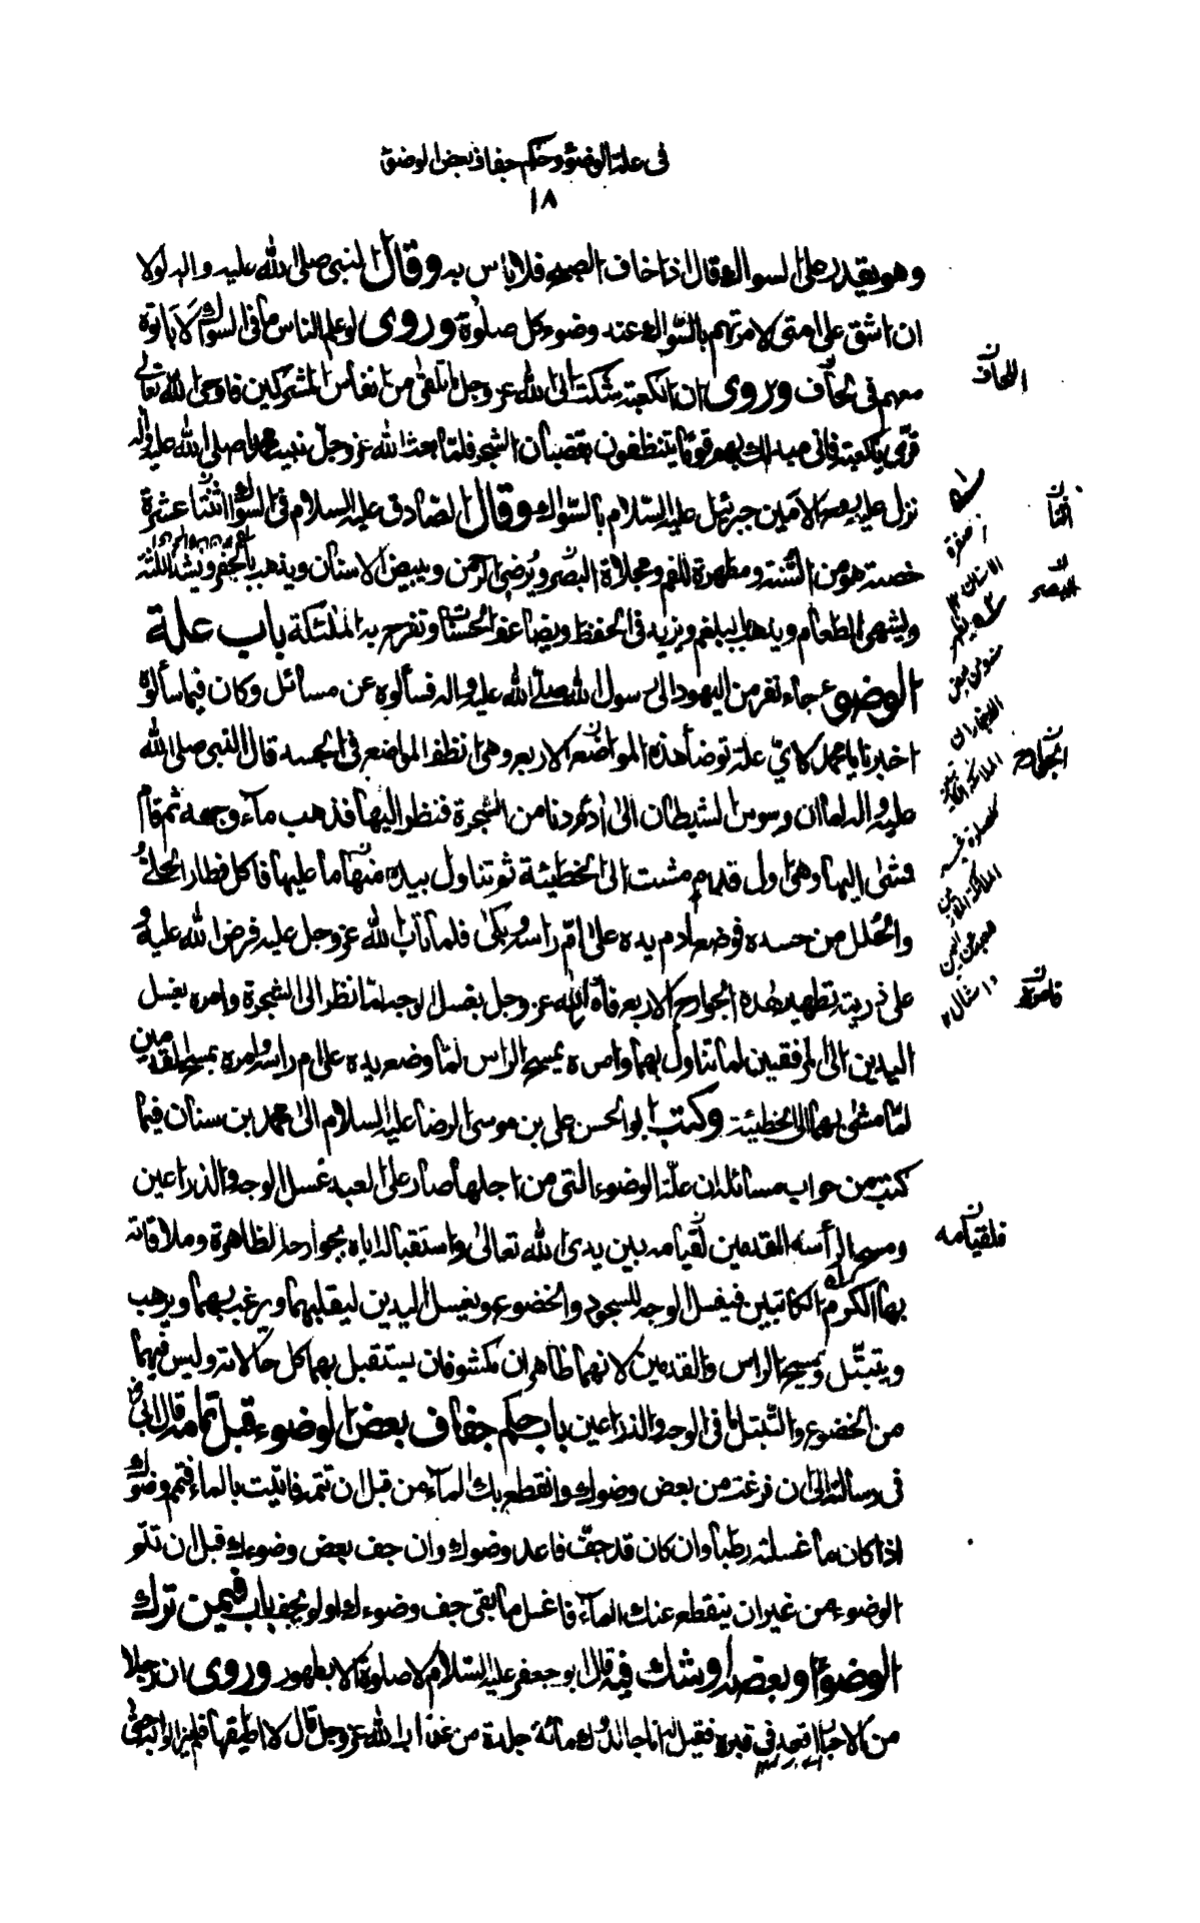 في علة الوضوء وحكم جفاف بعض الوضوء
١٨
وهو يقدر على السواك قال اذا خاف الصبح فلا باس به وقال النبي صلى الله عليه واله لولا
ان اشق على امتي لامرتهم بالسواك عند وضوء كل صلوة وروى لو علم الناس ما في السواك لاباتوه
معهم في لحاف وروى ان الكعبة شكت الى الله عز وجل ما تلقى من انفاس المشركين فاوحى الله تعالى
قرّى يا كعبة فاني مبدلك بهم قوما يتنظفون بقضبان الشجر فلما بعث الله عز وجل نبيه محمدا صلى الله عليه واله
نزل عليه الامين جبرئيل عليه السلام بالسواك وقال الصادق عليه السلام في السواك اثنتا عشرة
خصلة هو من السنة ومطهرة للفم ومجلاة البصر ويرضي الرحمن ويبيض الاسنان ويذهب بالحفر ويشد اللثة
ويشهى الطعام ويذهب بالبلغم ويزيد في الحفظ ويضاعف الحسنات وتفرح به الملئكة باب علة
الوضوء جاء نفر من اليهود الى رسول الله صلى الله عليه واله فسألوه عن مسائل وكان فيما سألوه
اخبرنا يا محمد لاي علة توضأ هذه المواضع الاربع وهي انظف المواضع في الجسد قال النبي صلى الله
عليه واله لما ان وسوس الشيطان الى ادم دنا من الشجرة فنظر اليها فذهب ماء وجهه ثم قام
ومشى اليها وهي اول قدم مشت الى الخطيئة ثم تناول بيده منها ما عليها فاكل فطار الحلي
والحلل من جسده فوضع ادم يده على ام راسه وبكى فلما تاب الله عز وجل عليه فرض الله عليه و
على ذريته تطهير هذه الجوارح الاربع فامر الله عز وجل بغسل الوجه لما نظر الى الشجرة وامره بغسل
اليدين الى المرفقين لما تناول بهما وامره بمسح الراس لما وضع يده على ام راسه وامره بمسح القدمين
لما مشى بهما الى الخطيئة وكتب ابو الحسن علي بن موسى الرضا عليه السلام الى محمد بن سنان فيما
كتب من جواب مسائله ان علة الوضوء التي من اجلها صار على العبد غسل الوجه والذراعين
ومسح الرأس والقدمين لقيامه بين يدي الله تعالى واستقباله اياه بجوارحه الظاهرة وملاقاته
بها الكرام الكاتبين فيغسل الوجه للسجود والخضوع ويغسل اليدين ليقلبهما ويرغب بهما ويرهب
ويتبتل ويمسح الراس والقدمين لانهما ظاهران مكشوفان يستقبل بهما كل حالاته وليس فيهما
من الخضوع والتبتل ما في الوجه والذراعين باب حكم جفاف بعض الوضوء قبل تمامه قال ابي رض
في رسالته الي ان فرغت من بعض وضوئك وانقطع بك الماء من قبل ان تتمه فاتيت بالماء فتمم وضوئك
اذا كان ما غسلته رطبا وان كان قد جف فاعد وضوئك وان جف بعض وضوءك قبل ان تتم
الوضوء من غير ان ينقطع عنك الماء فاغسل ما بقي جف وضوءك او لو يجف باب فيمن ترك
الوضوء او بعضه او شك فيه قال ابو جعفر عليه السلام لا صلوة الا بطهور وروى ان رجلا
من الاحبار اقعد في قبره فقيل له انا جالدوك مائة جلدة من عذاب الله عز وجل قال لا اطيقها فلم يزالوا به حتى
اللحاف
اثنا
البصر
الجوارح
فامره
فلقيامه
صفرة
الاسنان